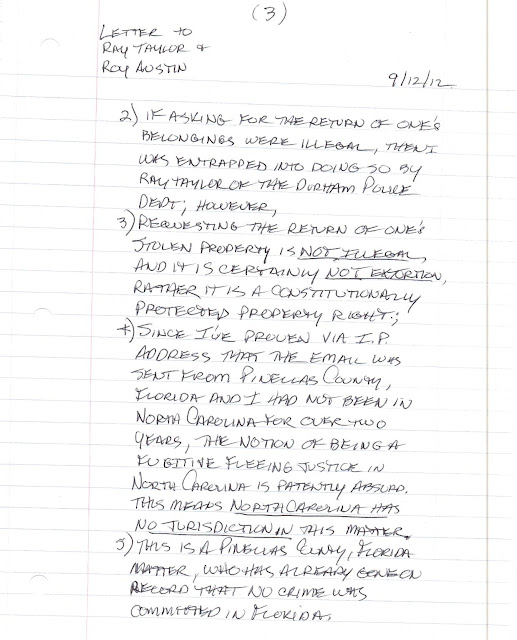 (3)
LETTER TO
RAY TAYLOR &
ROY AUSTIN
9/12/12
2) IF ASKING FOR THE RETURN OF ONE'S
BELONGINGS WERE ILLEGAL, THEN I
WAS ENTRAPPED INTO DOING SO BY
RAY TAYLOR OF THE DURHAM POLICE
DEPT; HOWEVER,
3) REQUESTING THE RETURN OF ONE'S
STOLEN PROPERTY IS NOT ILLEGAL,
AND IT IS CERTAINLY NOT EXTORTION,
RATHER IT IS A CONSTITUTIONALLY
PROTECTED PROPERTY RIGHT;
4) SINCE I'VE PROVEN VIA I.P.
ADDRESS THAT THE EMAIL WAS
SENT FROM PINELLAS COUNTY,
FLORIDA AND I HAD NOT BEEN IN
NORTH CAROLINA FOR OVER TWO
YEARS, THE NOTION OF BEING A
FUGITIVE FLEEING JUSTICE IN
NORTH CAROLINA IS PATENTLY ABSURD.
THIS MEANS NORTH CAROLINA HAS
NO JURISDICTION IN THIS MATTER.
5) THIS IS A PINELLAS COUNTY, FLORIDA
MATTER, WHO HAS ALREADY GONE ON
RECORD THAT NO CRIME WAS
COMMITTED IN FLORIDA.